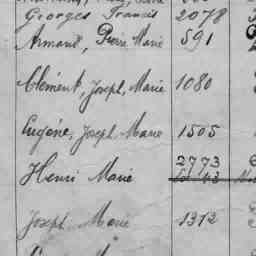 Georges Francis 2078
Armand, Pierre Marie 591
Clément, Joseph, Marie 1080
Eugéne, Joseph Marie 1505
Henri Marie 2773
Joseph Marie 1312